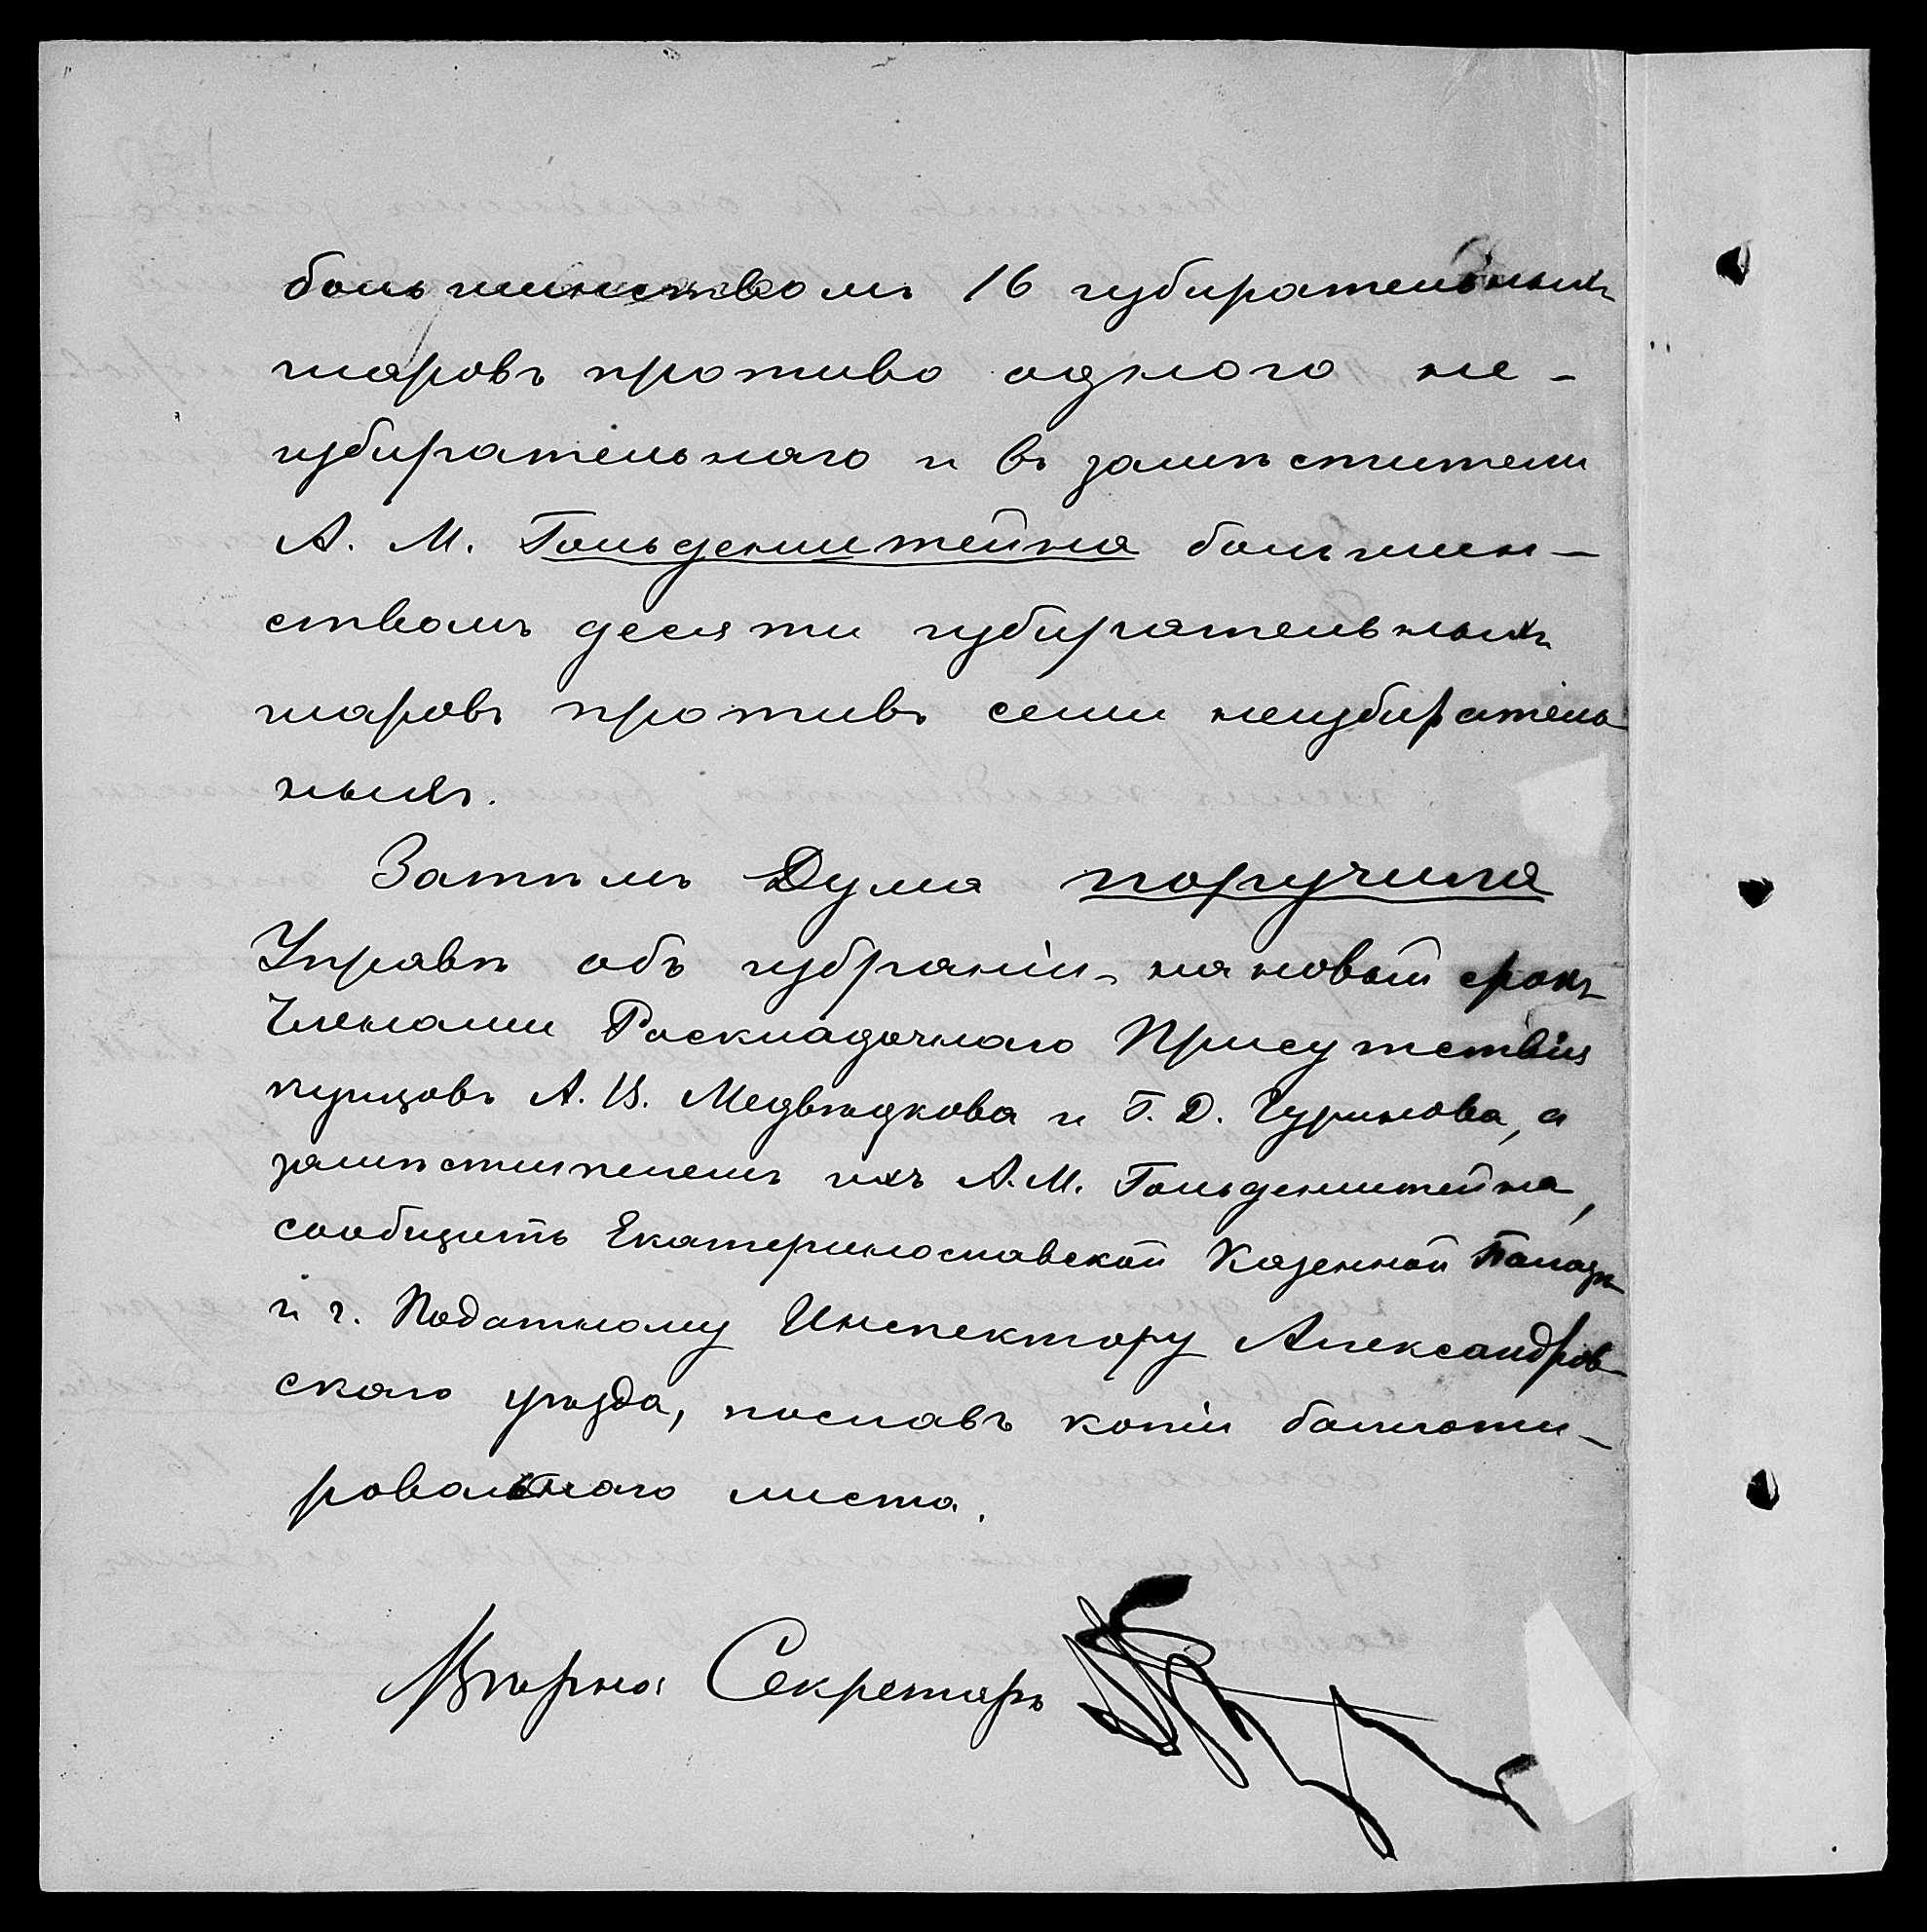 большинствомъ 16 избирательныхъ
шаровъ противо одного не-
избирательнаго и въ заместители
А. М. Гольденштейна большин-
ствомъ десяти избирательныхъ
шаровъ противъ семи неизбиратель
ныхъ.
Затѣмъ Дума поручила
Управѣ объ избраніи на новый срокъ
Членами Раскладочнаго Присутствія
купцовъ А. В. Медвѣдкова и Г. Д. Чуринова, а
замѣстителемъ ихъ А. М. Гольденштейна,
сообщить Екатеринославской Казенной Палатѣ
и г. Податному Инспектору Александров-
скаго уѣзда, пославъ копіи баллоти-
ровальнаго листа.
Вѣрно: Секретарь